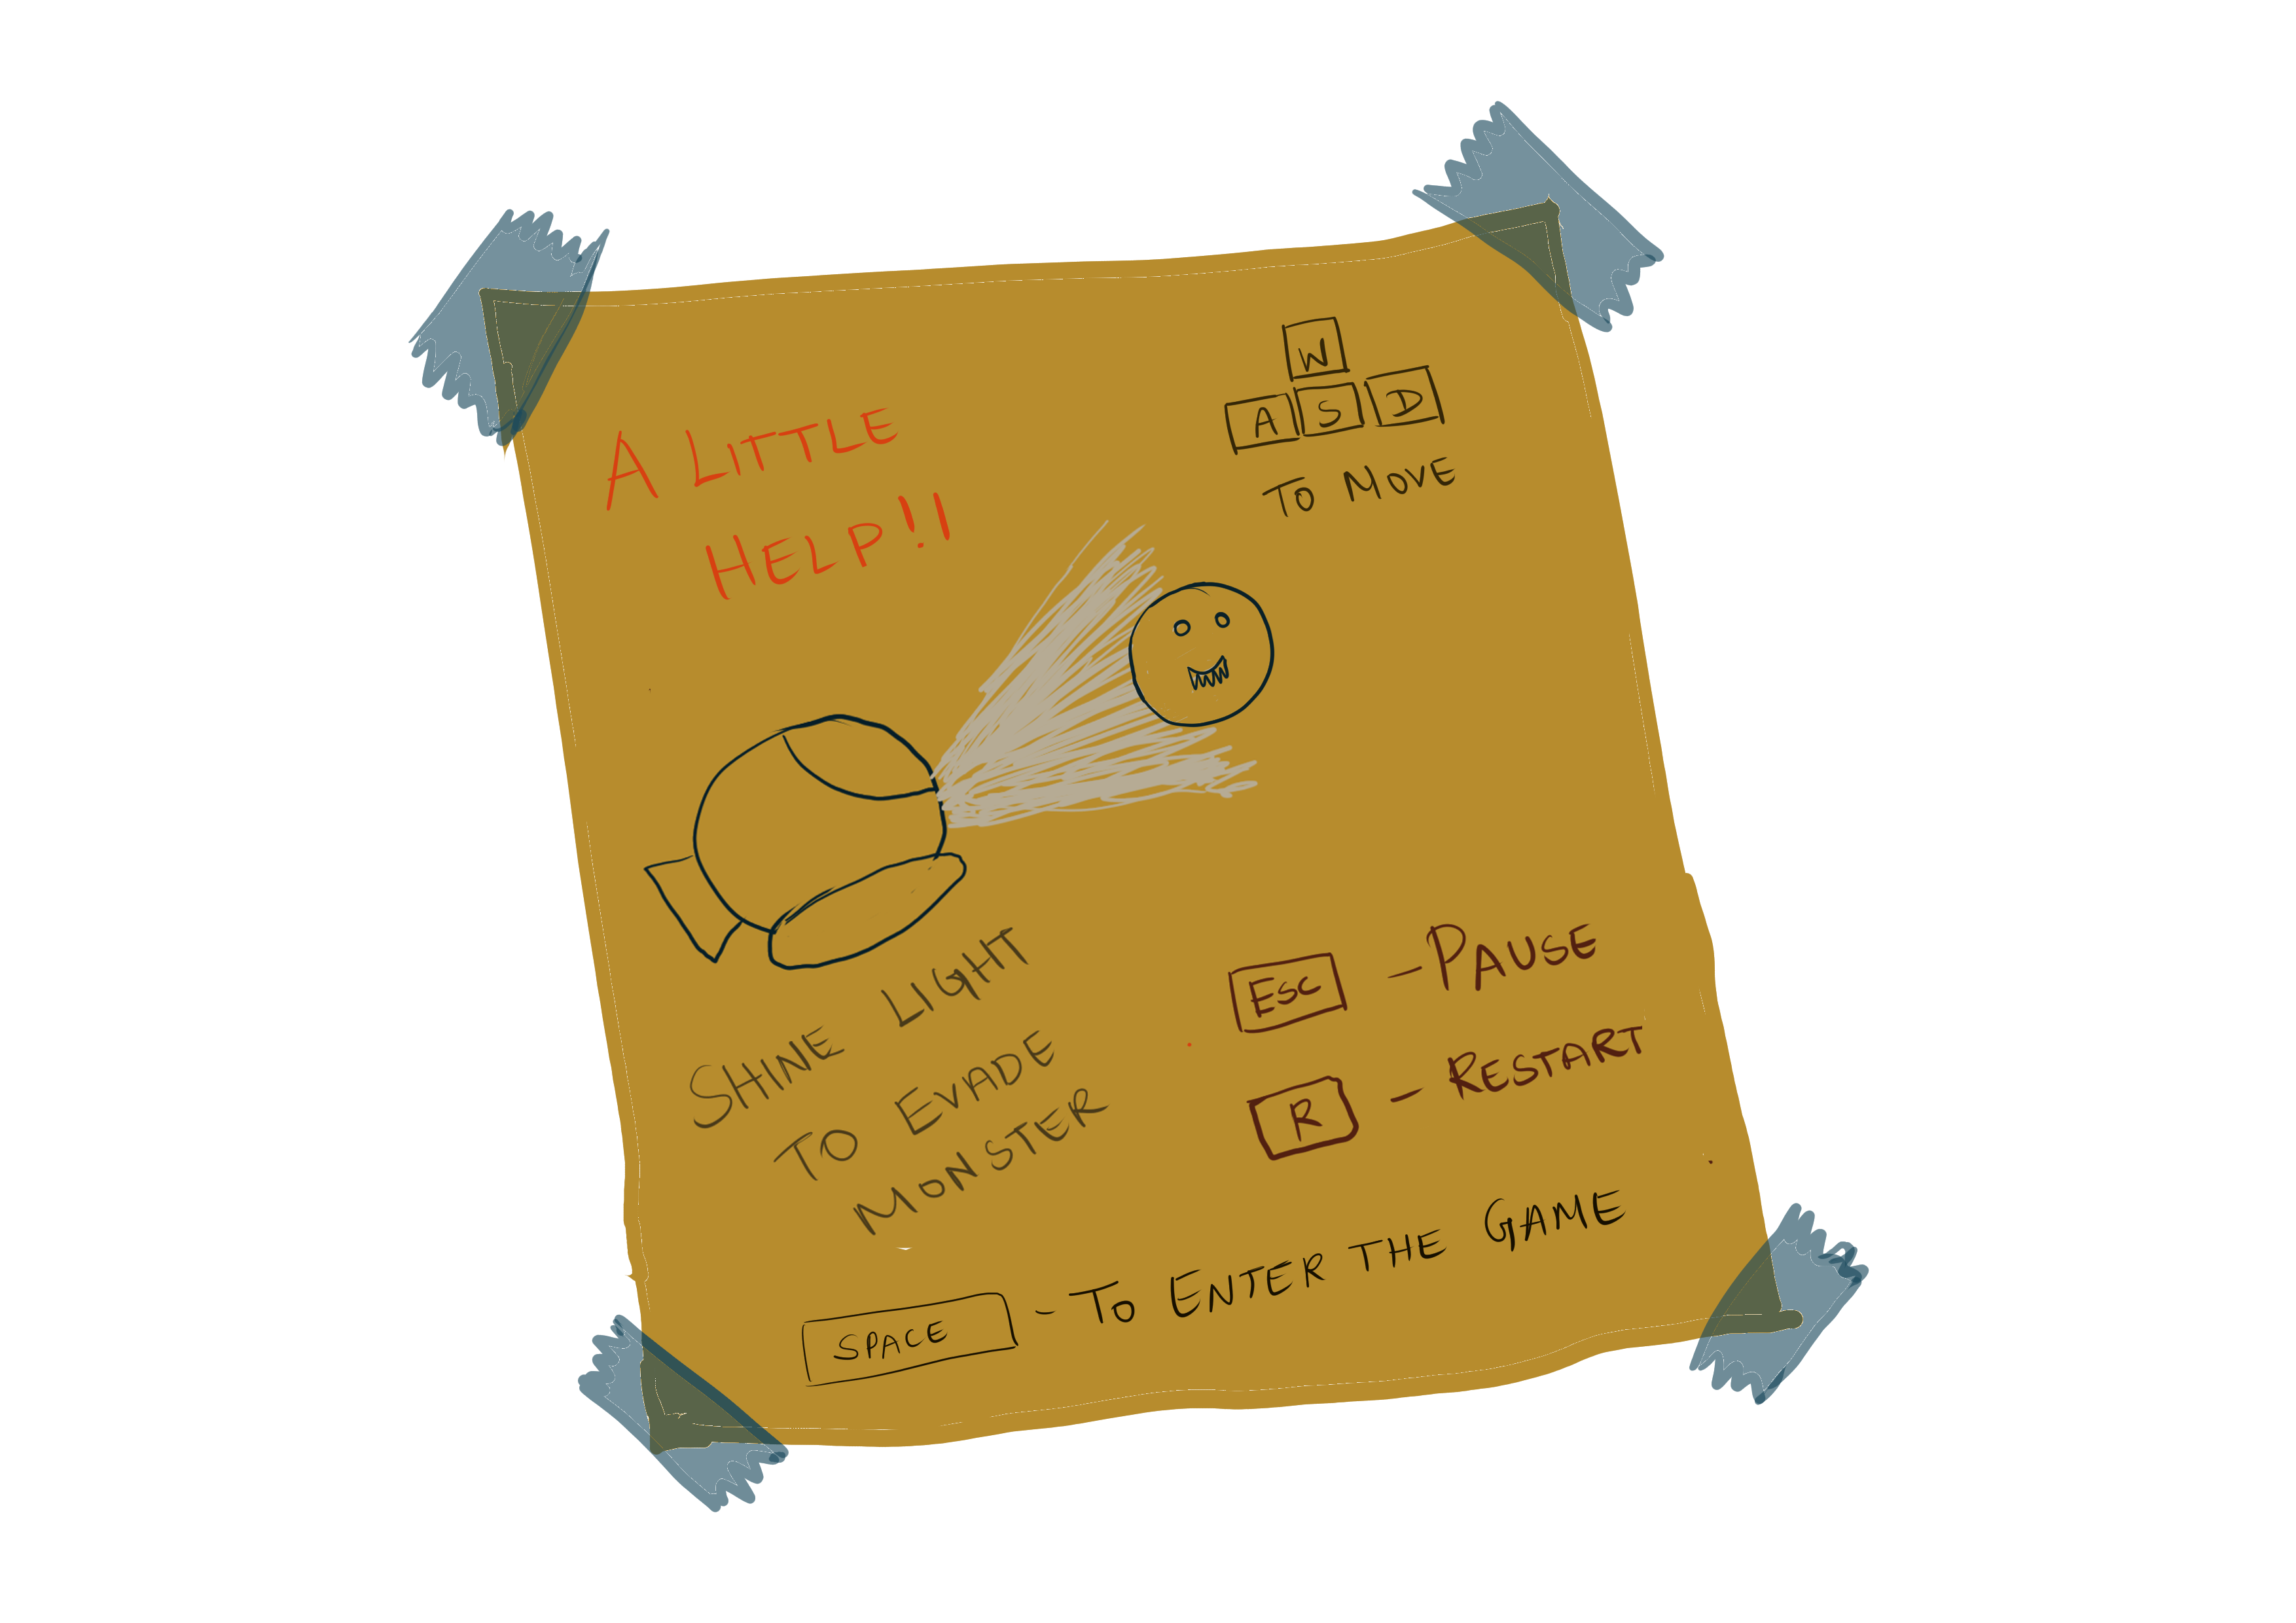 A LITTLE
HELP!!
W
A S D
TO MOVE
SHINE LIGHT
TO EVADE
MONSTER
ESC - PAUSE
R - RESTART
SPACE - TO ENTER THE GAME